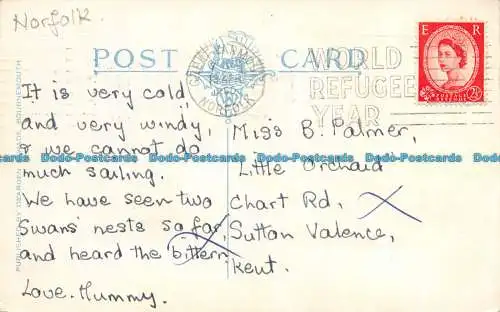 Norfolk
POST CARD
WORLD
REFUGEE
YEAR
E R
NORFOLK
POSTAGE REVENUE
2½D
It is very cold
and very windy,
& we cannot do
much sailing.
We have seen two
Swans' nests so far,
and heard the bittern
Love. Mummy.
Miss B. Palmer,
Little Orchard
Chart Rd,
Sutton Valence,
Kent.
Dodo-Postcards Dodo-Postcards Dodo-Postcards Dodo-Postcards